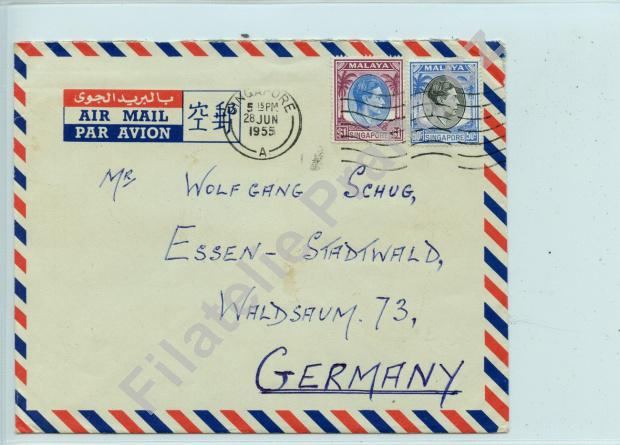 بالبريد الجوي
AIR MAIL
PAR AVION
空郵
SINGAPORE
5 15 PM
28 JUN
1955
A
MALAYA
$1 SINGAPORE $1
MALAYA
50c SINGAPORE 50c
Mr WOLFGANG SCHUG,
ESSEN-STADTWALD,
WALDSAUM. 73,
GERMANY
Filatelie Pra